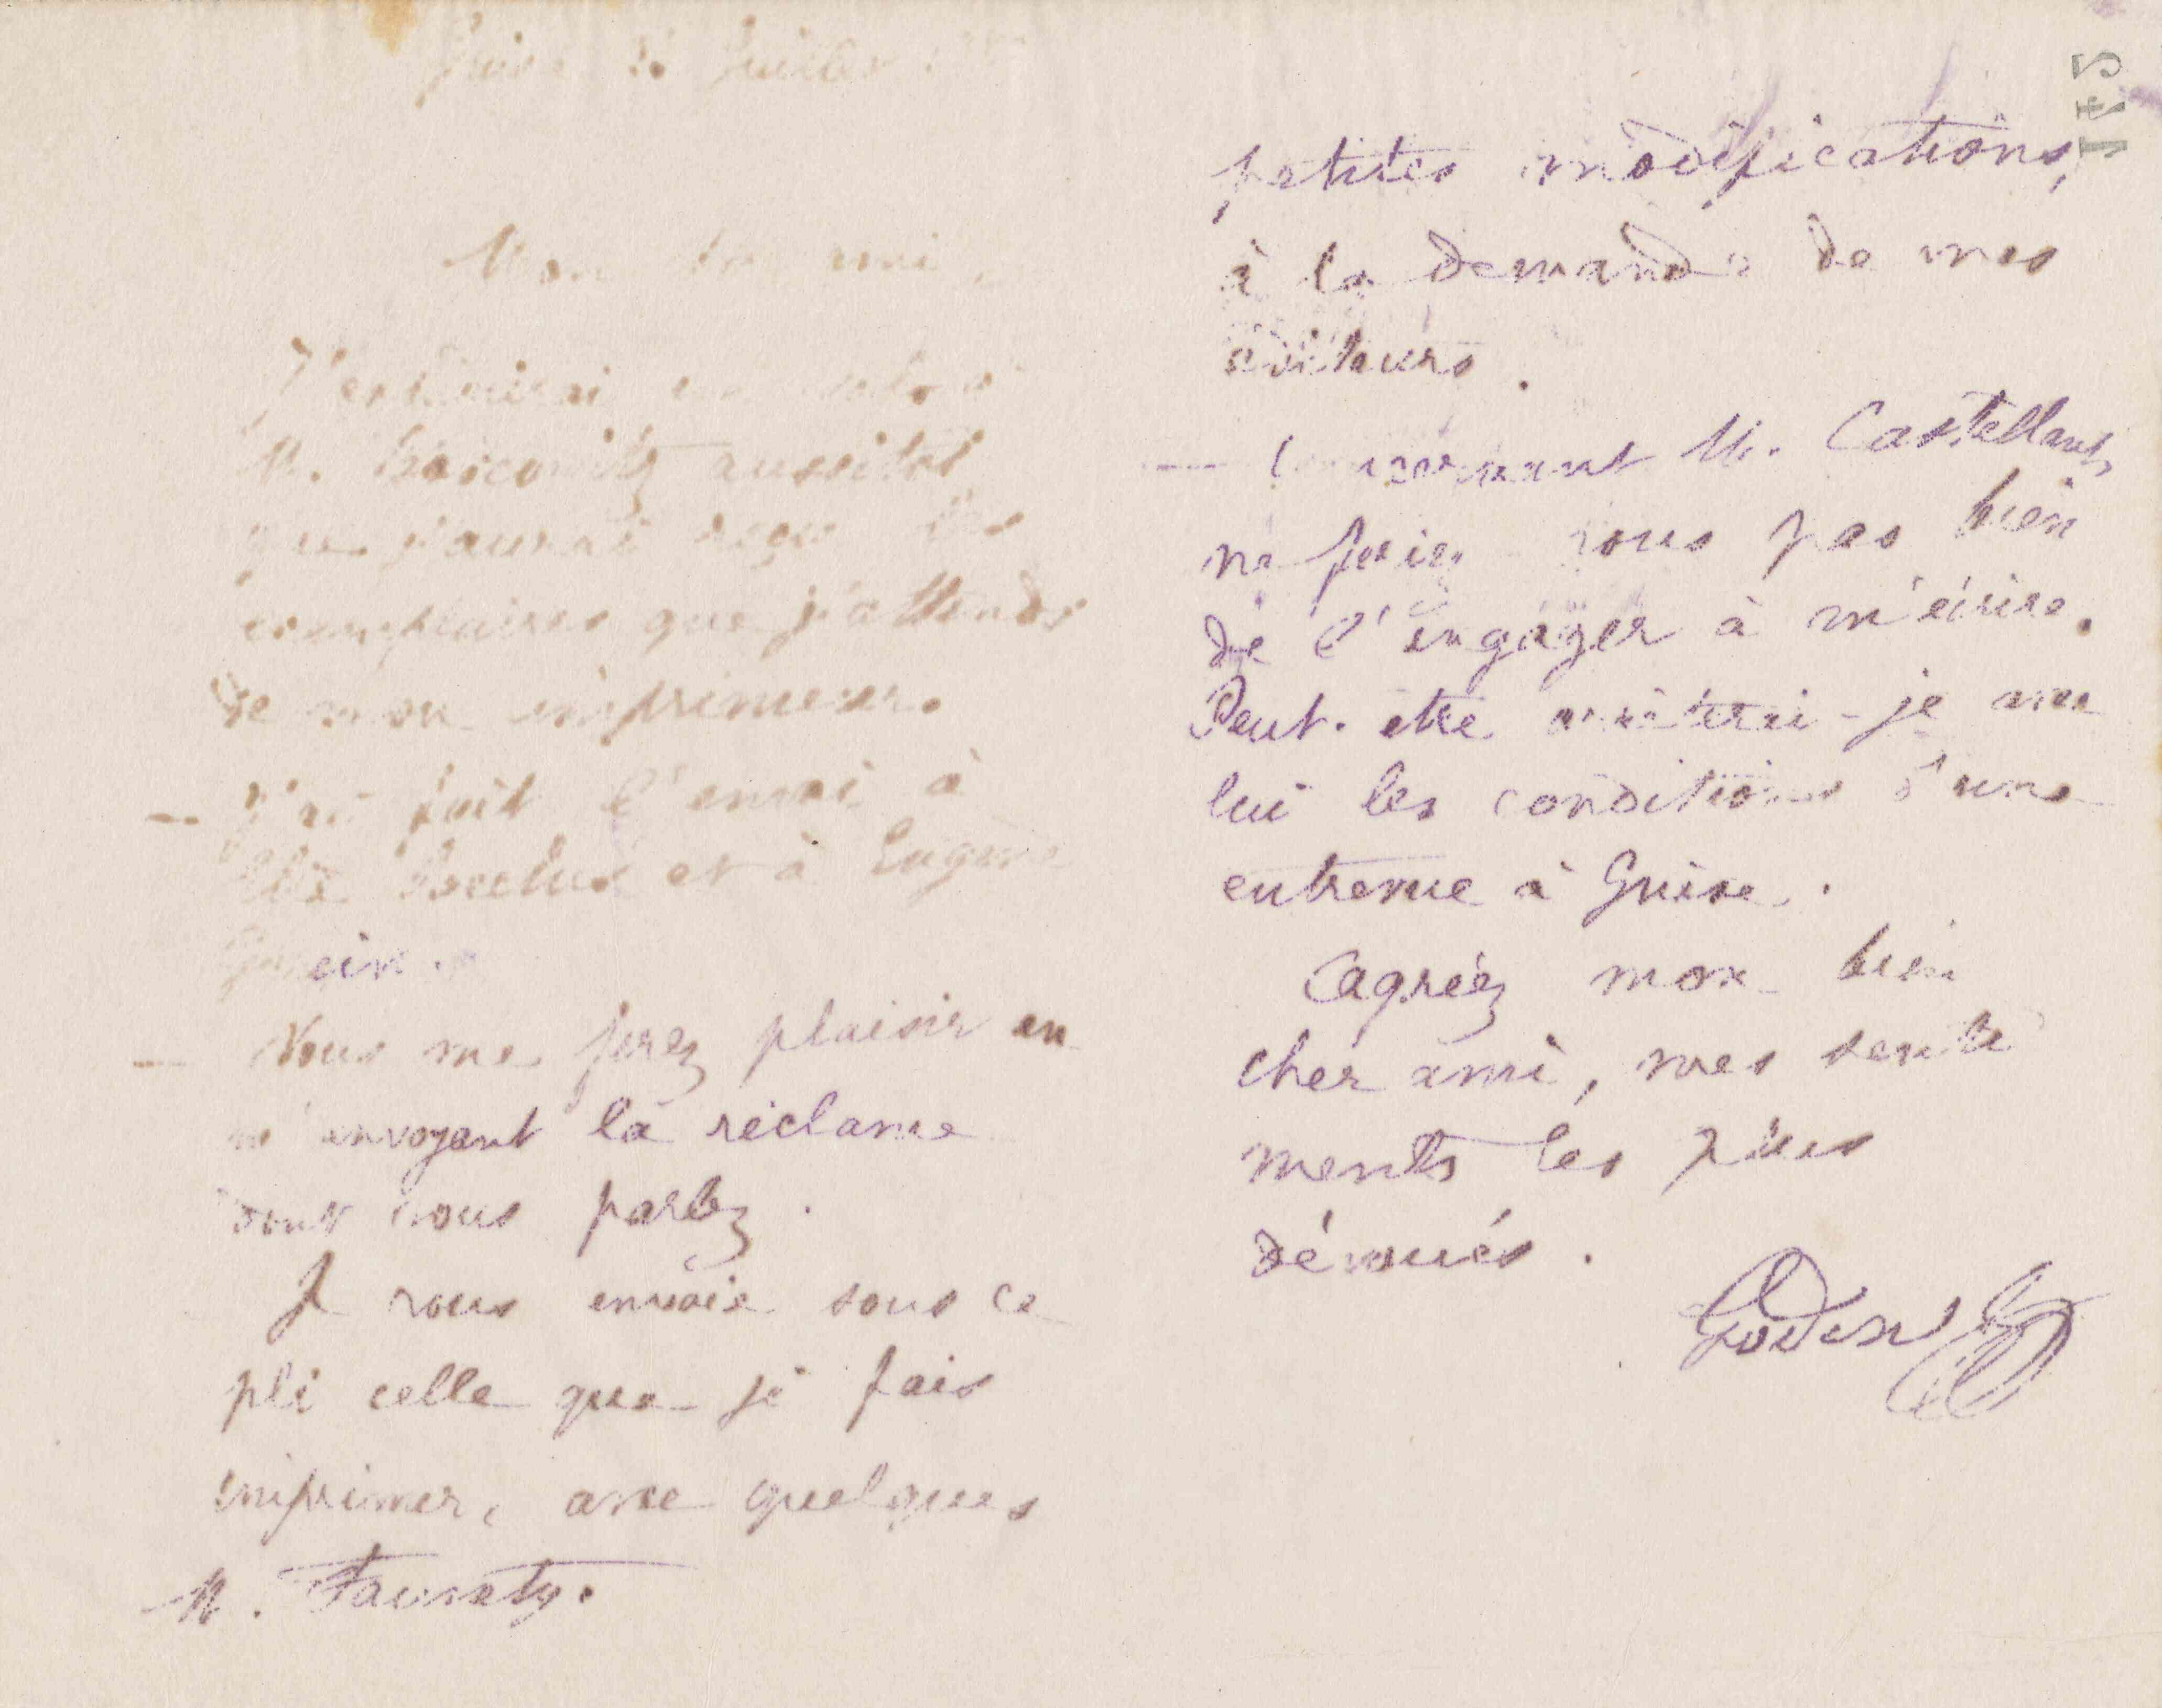 Guise
Mon cher ami,
J'enverrai
M. aussitôt
que j'aurai reçu les
exemplaires que j'attends
de mon imprimeur.
— J'ai fait l'envoi à
Reclus et à Eugène
— Vous me ferez plaisir en
m'envoyant la réclame
dont vous parlez.
Je vous envoie sous ce
pli celle que je fais
imprimer, avec quelques
M. Fauvety.
petites modifications,
à la demande de mes
éditeurs.
— Concernant M. Castellant,
ne feriez vous pas bien
de l'engager à m'écrire.
Peut-être arrêterai-je avec
lui les conditions d'une
entrevue à Guise.
Agréez mon bien
cher ami, mes senti
ments les plus
dévoués.
Godin